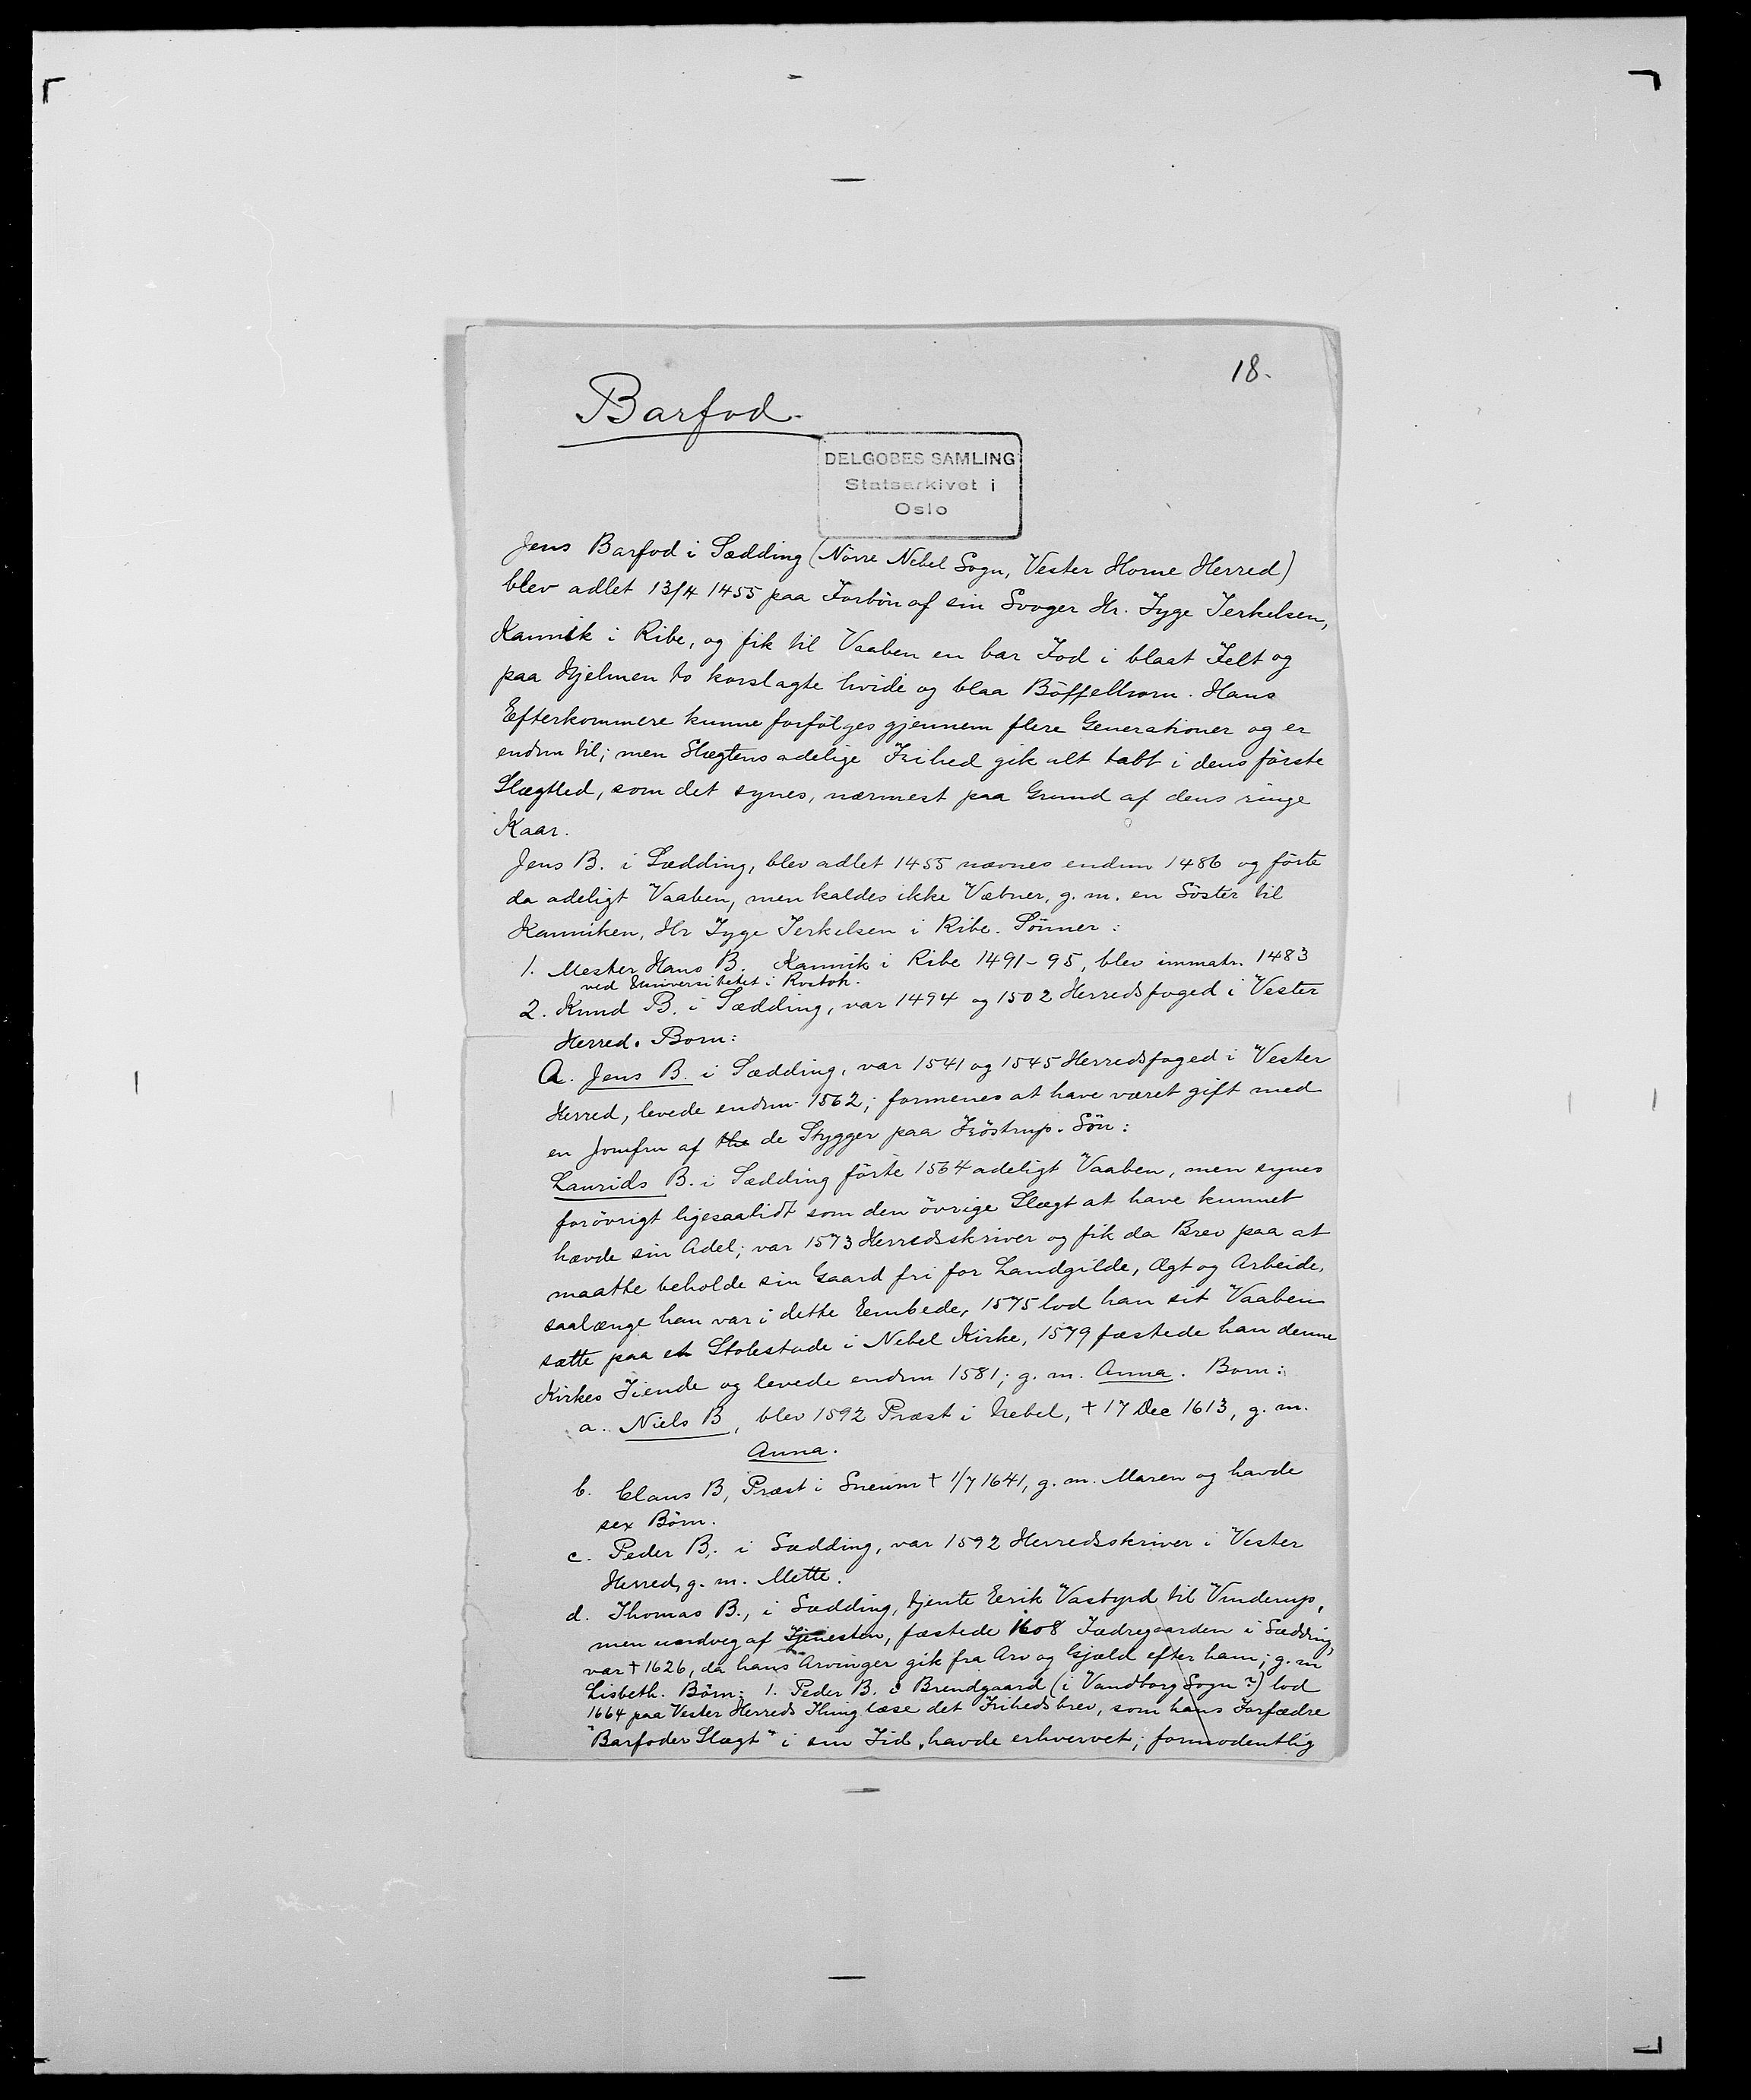 18.
Barfod.
DELGOBES SAMLING
Statsarkivet i
Oslo
Jens Barfod i Sædding (Nörre Nebel Sogn, Vester Horne Herred)
blev adlet 13/4 1455 paa Forbön af sin Svoger Hr. Tyge Terkelsen,
Kannik i Ribe, og fik til Vaaben en bar Fod i blaat Felt og
paa Hjelmen to korslagte hvide og blaa Böffelhorn. Hans
Efterkommere kunne forfölges gjennem flere Generationer og er
endnu til; men Slægtens adelige Frihed gik alt tabt i dens förste
Slægtled, som det synes, nærmest paa Grund af dens ringe
Kaar.
Jens B. i Sædding, blev adlet 1455 nævnes endnu 1486 og förte
da adeligt Vaaben, men kaldes ikke Væbner, g. m. en Söster til
Kanniken, Hr Tyge Terkelsen i Ribe. Sönner:
1. Mester Hans B. Kannik i Ribe 1491-95, blev immatr. 1483
ved Universitetet i Rostok.
2. Knud B. i Sædding, var 1494 og 1502 Herredsfoged i Vester
Herred. Born:
A. Jens B. i Sædding, var 1541 og 1545 Herredsfoged i Vester
Herred, levede endnu 1562; formenes at have været gift med
en Jomfru af the de Stygger paa Fröstrup. Sön:
Laurids B. i Sædding förte 1564 adeligt Vaaben, men synes
forövrigt ligesaalidt som den övrige Slægt at have kunnet
hævde sin Adel; var 1573 Herredsskriver og fik da Brev paa at
maatte beholde sin Gaard fri for Landgilde, Ægt og Arbeide,
saalænge han var i dette Eembede, 1575 lod han sit Vaaben
sætte paa et Stolestade i Nebel Kirke, 1579 fæstede han denne
Kirkes Tiende og levede endnu 1581; g. m. Anna. Born:
a. Niels B, blev 1592 Præst i Nebel, † 17 Dec 1613, g. m.
Anna.
b. Claus B, Præst i Sneum † 1/7 1641, g. m. Maren og havde
sex Börn.
c. Peder B, i Sædding, var 1592 Herredsskriver i Vester
Herred, g. m. Mette.
d. Thomas B., i Sædding, tjente Eerik Vastyrd til Vinderup,
men undveg af Tjenesten, fæstede 1608 Fædregaarden i Sædding,
var † 1626, da hans Arvinger gik fra Arv og Gjæld efter ham; g. m
Lisbeth. Börn: 1. Peder B. i Brendgaard (i Vandborg Sogn?) lod
1664 paa Vester Herreds Thing læse det Frihedsbrev, som hans Forfædre
"Barfoder Slægt" i sin Tid havde erhvervet; formodentlig